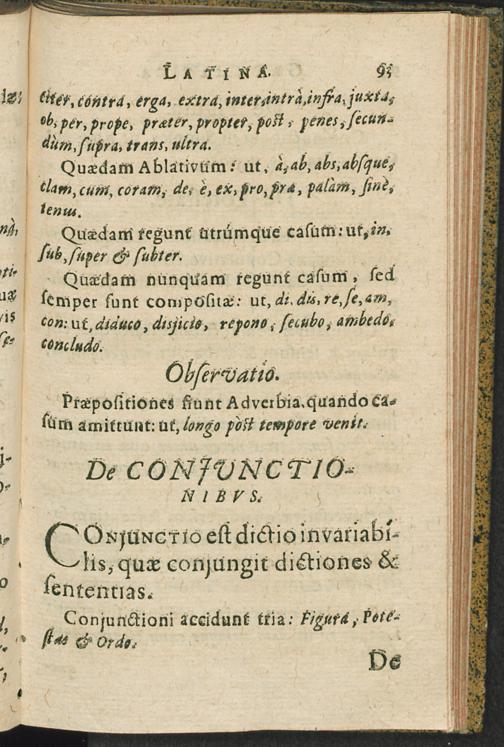 LATINA. 93
citer, contrà, erga, extra, inter, intrà, infra, juxta,
ob, per, prope, præter, propter, poſt, penes, ſecun-
dùm, ſupra, trans, ultra.
Quædam Ablativum: ut, à, ab, abs, abſque,
clam, cum, coram, de, è, ex, pro, præ, palàm, ſinè,
tenus.
Quædam regunt utrúmque caſum: ut, in,
ſub, ſuper & ſubter.
Quædam nunquam regunt caſum, ſed
ſemper ſunt compoſitæ: ut, di, dis, re, ſe, am,
con: ut, diduco, disjicio, repono, ſecubo, ambedo,
concludo.
Obſervatio.
Præpoſitiones fiunt Adverbia, quando ca-
ſum amittunt: ut, longo pòſt tempore venit.
De CONJUNCTIO-
NIBVS.
CONJUNCTIO eſt dictio invariabi-
lis, quæ conjungit dictiones &
ſententias.
Conjunctioni accidunt tria: Figura, Pote-
ſtas & Ordo.
De